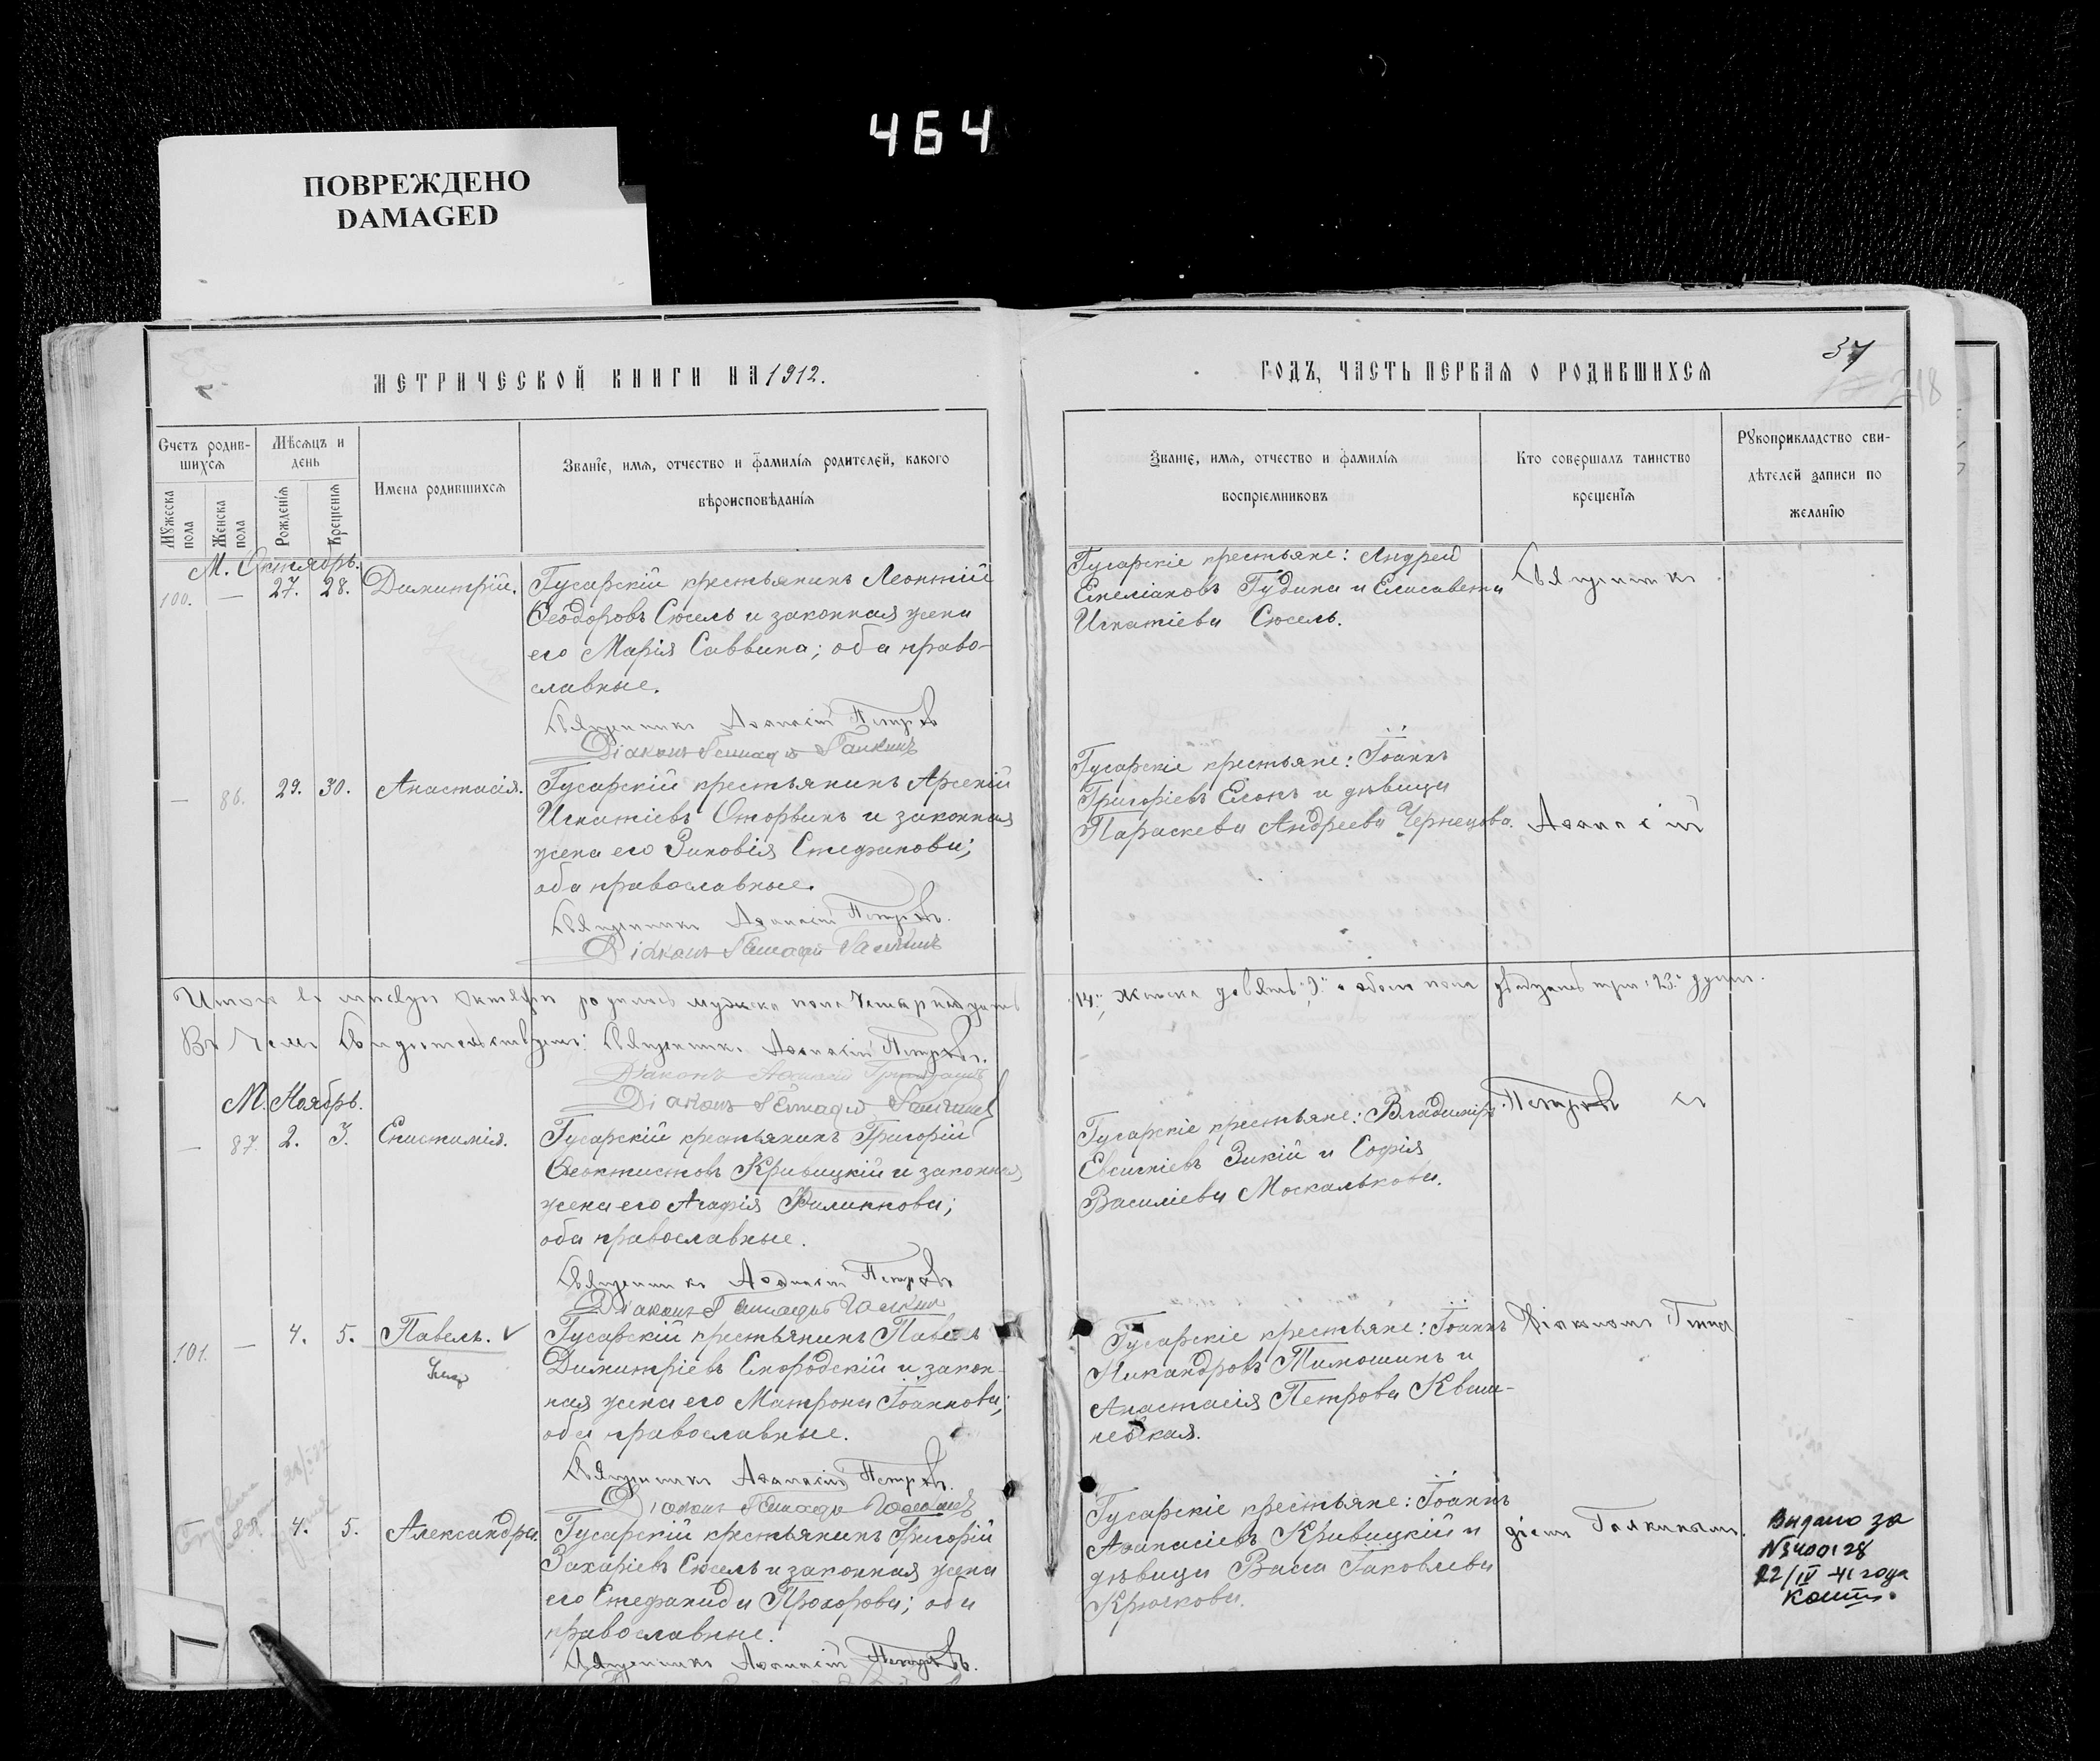 464
ПОВРЕЖДЕНО
DAMAGED
МЕТРИЧЕСКОЙ КНИГИ НА 1912.
Счетъ родив-
шихся
Мѣсяцъ и
день
Имена родившихся
Званіе, имя, отчество и фамилія родителей, какого
вѣроисповѣданія
Мужеска
пола
Женска
пола
Рожденія
Крещенія
М. Октябрь.
100. — 27. 28. Димитрій.
Гусарскій крестьянинъ Леонтій
Ѳеодоровъ Сюсель и законная жена
его Марія Саввина; оба право-
славные.
Священникъ Аѳанасій Петровъ
Діаконъ Геннадій Галкинъ
— 86. 29. 30. Анастасія.
Гусарскій крестьянинъ Арсеній
Игнатіевъ Оторвинъ и законная
жена его Зиновія Стефанова;
оба православные.
Священникъ Аѳанасій Петровъ.
Діаконъ Геннадій Галкинъ
Итого въ мѣсяцѣ Октябрѣ родилось мужска пола четырнадцать
Въ чемъ свидѣтельствуемъ: Священникъ Аѳанасій Петровъ.
Діаконъ
Діаконъ Геннадій Галкинъ
М. Ноябрь.
— 87. 2. 3. Епистимія.
Гусарскій крестьянинъ Григорій
Ѳеоктистовъ Кривицкій и законная
жена его Агафія Филиппова;
оба православные.
Священникъ Аѳанасій Петровъ
Діаконъ Геннадій Галкинъ
101. — 4. 5. Павелъ. ✓
Гусарскій крестьянинъ Павелъ
Димитріевъ Скородскій и закон-
ная жена его Матрона Іоаннова;
оба православные.
Священникъ Аѳанасій Петровъ.
Діаконъ Геннадій Галкинъ
— 88. 4. 5. Александра.
Гусарскій крестьянинъ Григорій
Захаріевъ Сюсель и законная жена
его Стефанида Прохорова; оба
православные.
Священникъ Аѳанасій Петровъ.
37
218
ГОДЪ, ЧАСТЬ ПЕРВАЯ О РОДИВШИХСЯ
Званіе, имя, отчество и фамилія
воспріемниковъ
Кто совершалъ таинство
крещенія
Рукоприкладство сви-
дѣтелей записи по
желанію
Гусарскіе крестьяне: Андрей
Емеліановъ Гудина и Елисавета
Игнатіева Сюсель.
Священникъ
Гусарскіе крестьяне: Іоаннъ
Григоріевъ Елонъ и дѣвица
Параскева Андреева Чернецова.
Аѳанасій
"14", женска девять "9" а обоего пола двадцать три "23" души.
Гусарскіе крестьяне: Владиміръ
Евсигніевъ Зикій и Софія
Василіева Москалькова.
Петровъ съ
Гусарскіе крестьяне: Іоаннъ
Никандровъ Тимошинъ и
Анастасія Петрова Кваш-
невская.
Діакономъ Генна
Гусарскіе крестьяне: Іоаннъ
Аѳанасіевъ Кривицкій и
дѣвица Васса Іаковлева
Крючкова.
діемъ Галкинымъ.
Выдано за
22/IV-41 года